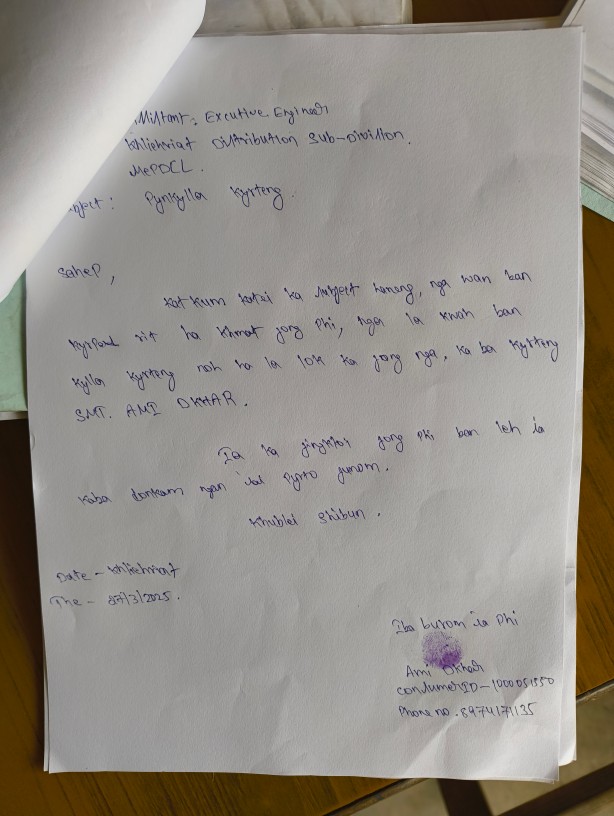 Executive Engineer
Khliehriat Distribution Sub-Division.
MePDCL.
Pynkylla kyrteng.
Sahep,
Kat kum katei ka subject haneng, nga wan ban
kyrpad sit ha khmat jong phi, nga la kwah ban
kylla kyrteng noh ha la lok ka jong nga, ka ba kyrteng
SMT. AMI DKHAR.
Ia ka jingktor jong phi ban leh ia
kaba donkam ngan ïai pyrto junom.
Khublei Shibun.
Date - Khliehriat
The - 07/3/2025.
Iba burom ia phi
Ami Dkhar
consumer ID - 1000051550
Phone no. 8974171135